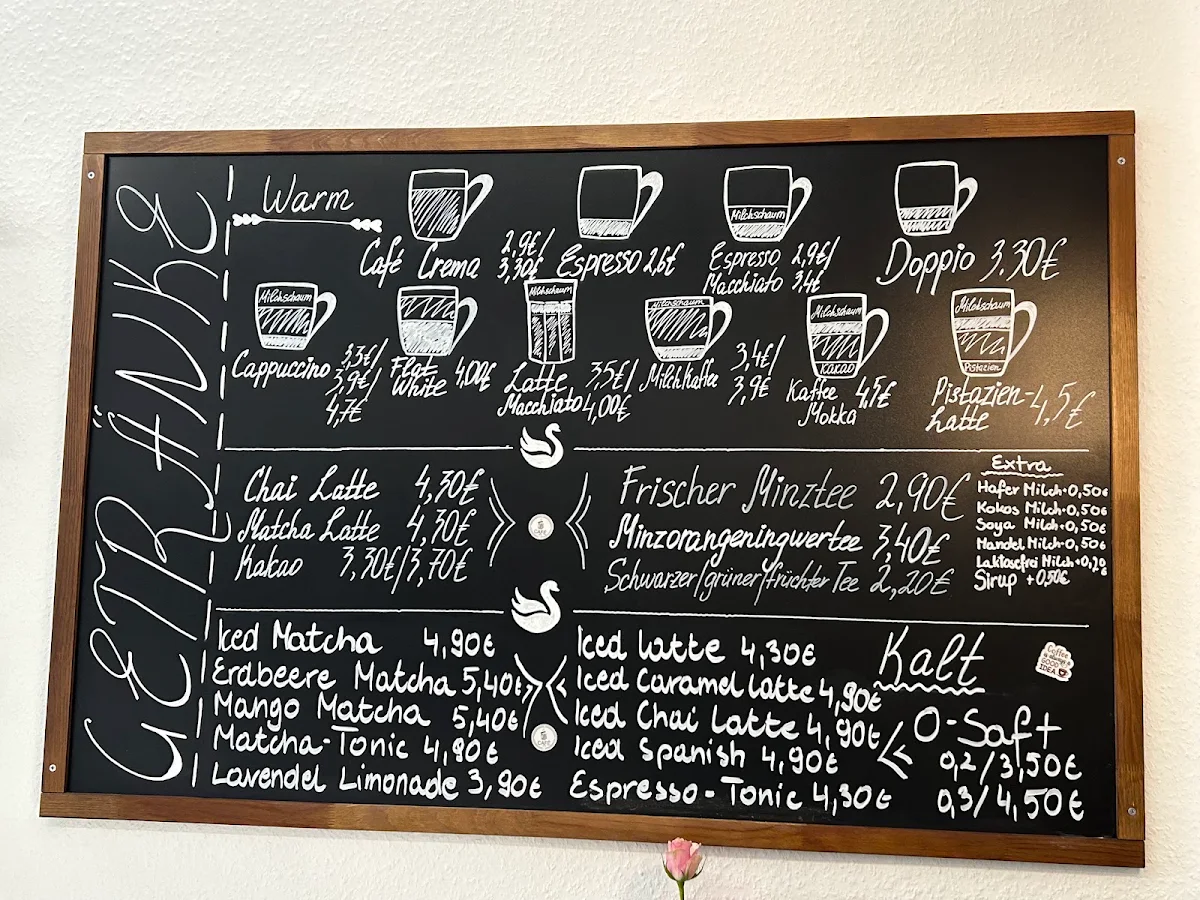 GETRÄNKE
Warm
Café Crema 2,9€/
3,30€
Espresso 2,6€
Espresso 2,9€/
Macchiato 3,4€
Doppio 3.30€
Milchschaum
Milchschaum
Cappuccino 3,3€/
3,9€/
4,7€
Flat
White 4,00€
Milchschaum
Latte 3,5€/
Macchiato 4,00€
Milchschaum
Milchkaffee 3,4€/
3,9€
Milchschaum
KaKao
Kaffee 4,5€
Mokka
Milchschaum
Pistazien
Pistazien-
Latte 4,5€
Chai Latte 4,30€
Matcha Latte 4,30€
Kakao 3,30€/3,70€
CAFE
Frischer Minztee 2,90€
Minzorangeningwertee 3,40€
Schwarzer/grüner/früchter Tee 2,20€
Extra
Hafer Milch+0,50€
Kokos Milch+0,50€
Soya Milch+0,50€
Mandel Milch+0,50€
Laktosefrei Milch+0,20
Sirup +0,50€
Iced Matcha 4,90€
Erdbeere Matcha 5,40€
Mango Matcha 5,40€
Matcha-Tonic 4,90€
Lavendel Limonade 3,90€
CAFE
Iced Latte 4,30€
Iced Caramel Latte 4,90€
Iced Chai Latte 4,90€
Iced Spanish 4,90€
Espresso-Tonic 4,30€
Kalt
Coffee
is always a
GOOD
IDEA
O-Saft
0,2/3,50€
0,3/4,50€